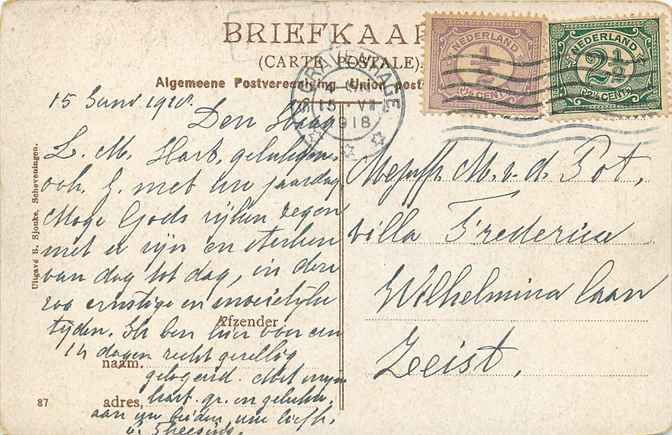 BRIEFKAAR
(CARTE POSTALE)
Algemeene Postvereeniging (Union post
'S GRAVENHAGE
15 VI
1918
NEDERLAND
½
CENT
NEDERLAND
2½
CENT
15 Juni 1918.
Den Haag
L. M. Hart. gelukgew.
ook. h. met uw jaardag
Moge Gods rijken zegen
met u zijn en sterken
van dag tot dag, in deze
zoo ernstige en moeielijke
tijden. Ik ben hier voor een
14 dagen recht gezellig
gelogeerd. Met mijn
hart. gr. en gelukw.
aan uw beiden, uw liefh.
v.
Mejuffr. M. v. d. Pot,
villa Frederica
Wilhelmina laan
Zeist.
Afzender
naam.
adres,
87
Uitgave B. Sjouke, Scheveningen.